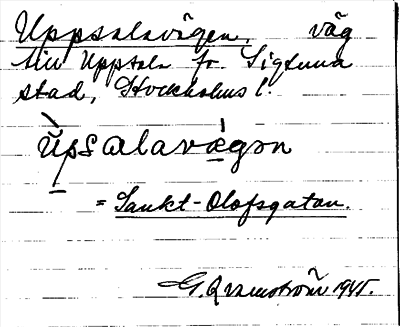 Uppsalavägen, väg
till Uppsala fr. Sigtuna
stad, Stockholms l.
ùpsalavègən
= Sankt-Olofsgatan.
G. Qvarnström 1945.